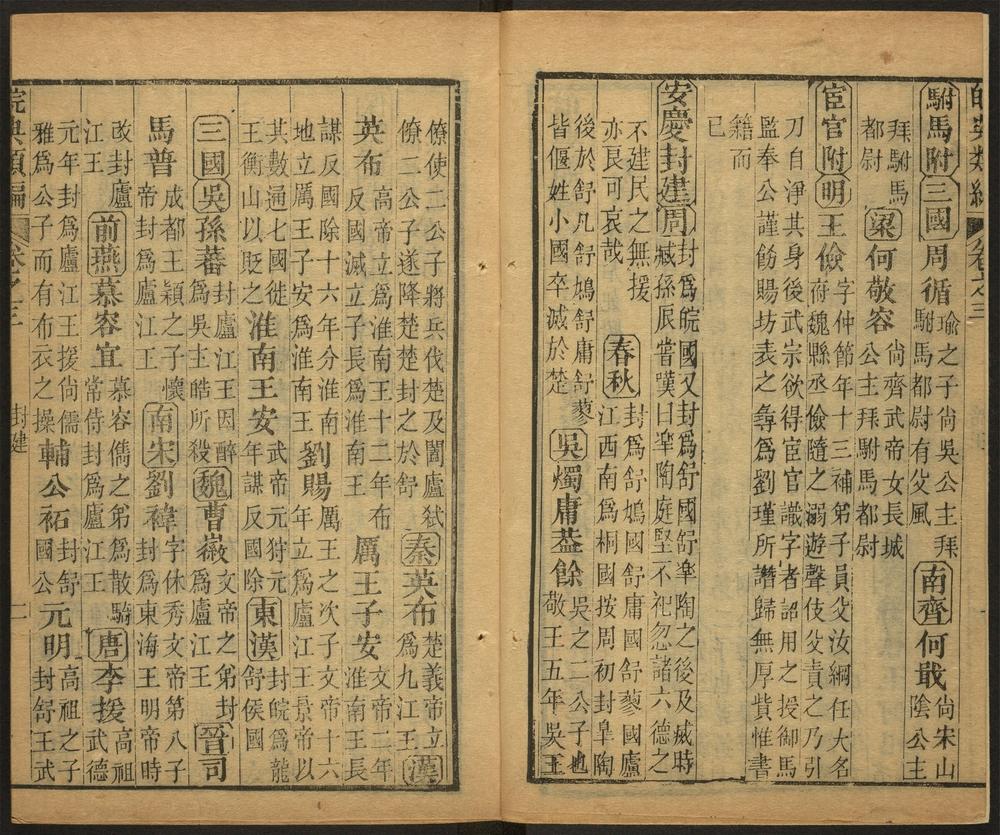 皖典類編 卷之三
駙馬附 三國 周循 瑜之子尚吳公主拜
駙馬都尉有父風 南齊 何戢 尚宋山
陰公主
拜駙馬
都尉 梁 何敬容 尚齊武帝女長城
公主拜駙馬都尉
宦官附 明 王儉 字仲節年十三補弟子員父汝綱任大名
府魏縣丞儉隨之溺遊聲伎父責之乃引
刀自淨其身後武宗欲得宦官識字者詔用之授御馬
監奉公謹飭賜坊表之尋為劉瑾所譖歸無厚貲惟書
籍而
已
安慶封建 周 封為皖國又封為舒國舒臯陶之後及威時
臧孫辰嘗嘆曰臯陶庭堅不祀忽諸六德之
不建民之無援
亦良可哀哉 春秋 封為舒鳩國舒庸國舒蓼國盧
江西南為桐國按周初封皐陶
後於舒凡舒鳩舒庸舒蓼
皆偃姓小國卒滅於楚 吳 燭庸葢餘 吳之二公子也
敬王五年吳王
僚使二公子將兵伐楚及闔廬弒
僚二公子遂降楚楚封之於舒 秦 英布 楚義帝立
為九江王 漢
英布 高帝立為淮南王十二年布
反國滅立子長為淮南王 厲王子安 文帝二年
淮南王長
謀反國除十六年分淮南
地立厲王子安為淮南王 劉賜 厲王之次子文帝十六
年立為廬江王景帝以
其數通七國徙
王衡山以貶之 淮南王安 武帝元狩元
年謀反國除 東漢 封皖為龍
舒侯國
三國 吳 孫蕃 封廬江王因醉
為吳主皓所殺 魏 曹嶶 文帝之弟封
為廬江王 晉 司
馬普 成都王穎之子懷
帝封為廬江王 南宋 劉褘 字休秀文帝第八子
封為東海王明帝時
改封廬
江王 前燕 慕容宜 慕容儁之弟為散騎
常侍封為廬江王 唐 李援 高祖
武德
元年封為廬江王援尚儒
雅為公子而有布衣之操 輔公祏 封舒
國公 元明 高祖之子
封舒王武
皖典類編 卷之三 封建 一